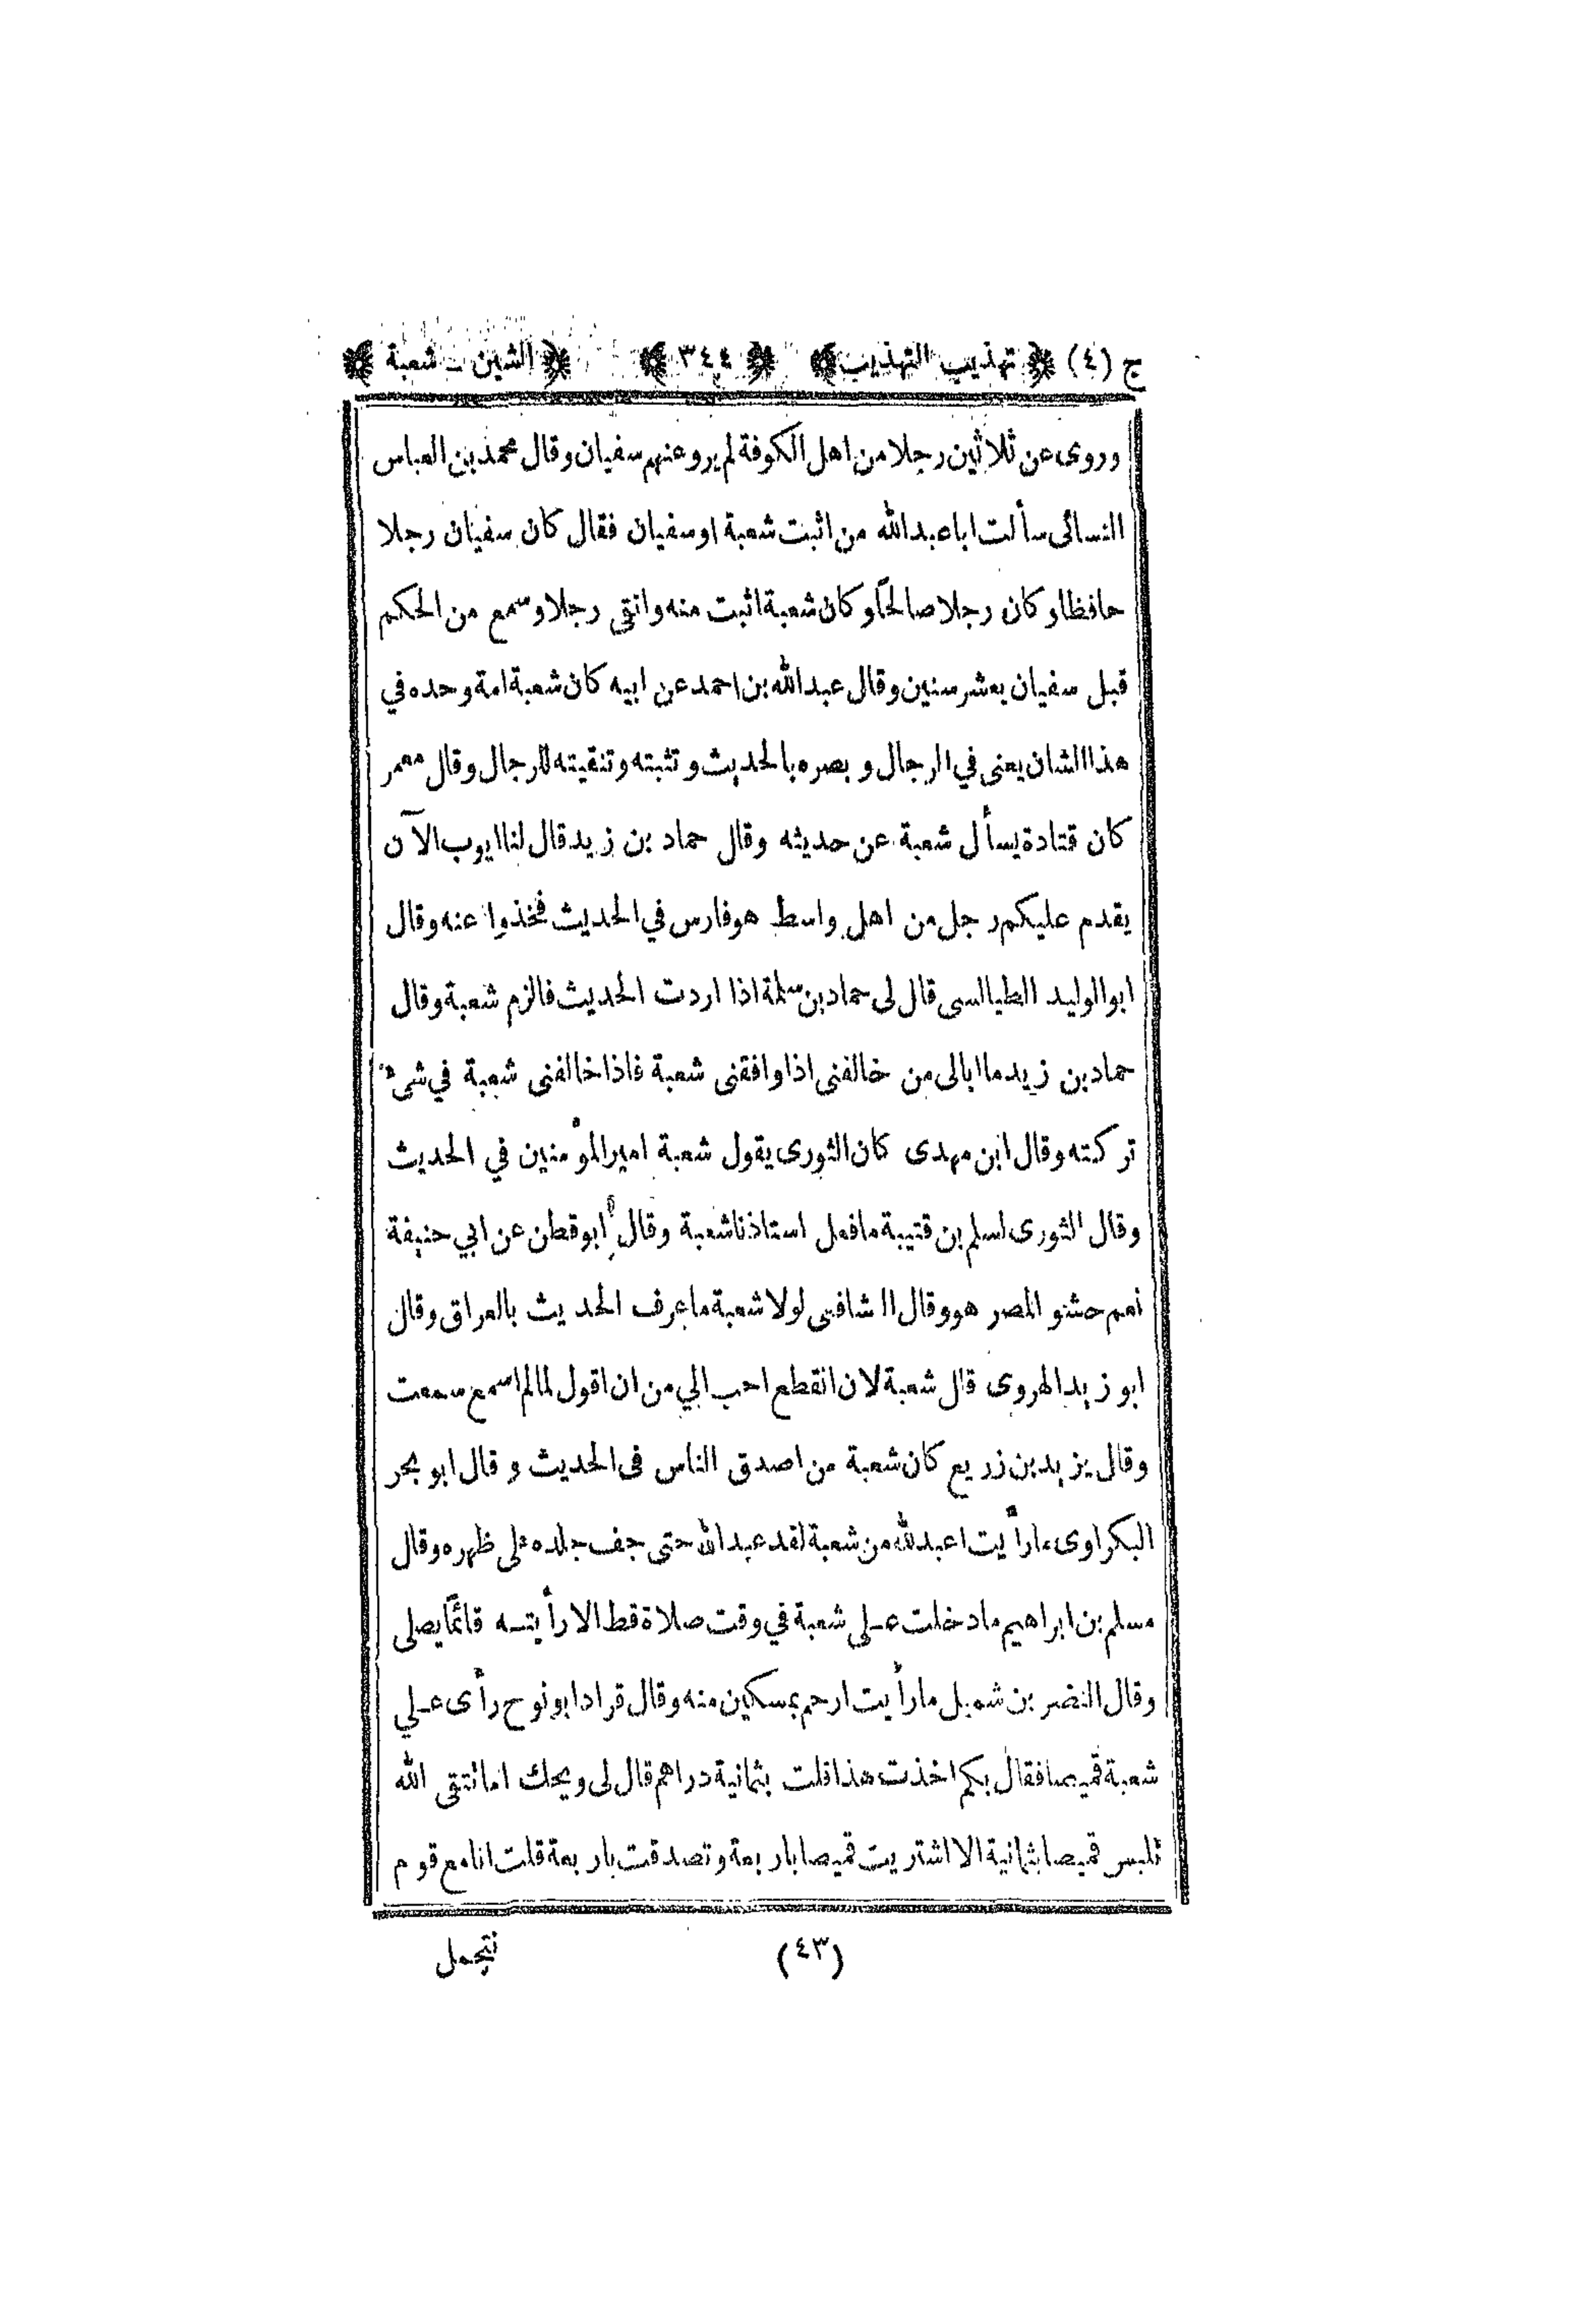 ج (٤) ﴿ تهذيب التهذيب ﴾ ﴿ ٣٤٤ ﴾ ﴿ الشين – شعبة ﴾
وروى عن ثلاثين رجلا من اهل الكوفة لم يرو عنهم سفيان وقال محمد بن العباس
النسائى سألت ابا عبد الله من اثبت شعبة او سفيان فقال كان سفيان رجلا
حافظا وكان رجلا صالحاً وكان شعبة اثبت منه وانقى رجلا وسمع من الحكم
قبل سفيان بعشر سنين وقال عبد الله بن احمد عن ابيه كان شعبة امة وحده في
هذا الشان يعنى في الرجال و بصره بالحديث و تثبته وتنقيته للرجال وقال معمر
كان قتادة يسأل شعبة عن حديثه وقال حماد بن زيد قال لنا ايوب الآن
يقدم عليكم رجل من اهل واسط هو فارس في الحديث فخذوا عنه وقال
ابو الوليد الطيالسى قال لى حماد بن سلمة اذا اردت الحديث فالزم شعبة وقال
حماد بن زيد ما ابالى من خالفنى اذا وافقنى شعبة فاذا خالفنى شعبة في شىء
تركته وقال ابن مهدى كان الثورى يقول شعبة امير المؤمنين في الحديث
وقال الثورى لسلم بن قتيبة ما فعل استاذنا شعبة وقال ابو قطن عن ابي حنيفة
نعم حشو المصر هو وقال الشافعى لولا شعبة ما عرف الحديث بالعراق وقال
ابو زيد الهروى قال شعبة لان انقطع احب الي من ان اقول لما لم اسمع سمعت
وقال يزيد بن زريع كان شعبة من اصدق الناس فى الحديث وقال ابو بحر
البكراوى ما رأيت اعبد لله من شعبة لقد عبد الله حتى جف جلده على ظهره وقال
مسلم بن ابراهيم ما دخلت على شعبة في وقت صلاة قط الا رأيته قائماً يصلى
وقال النضر بن شميل ما رأيت ارحم بمسكين منه وقال قراد ابو نوح رأى علي
شعبة قميصا فقال بكم اخذت هذا قلت بثمانية دراهم قال لى ويحك اما تتقى الله
تلبس قميصا بثمانية الا اشتريت قميصا باربعة وتصدقت باربعة قلت انا مع قوم
(٤٣)
نتجمل